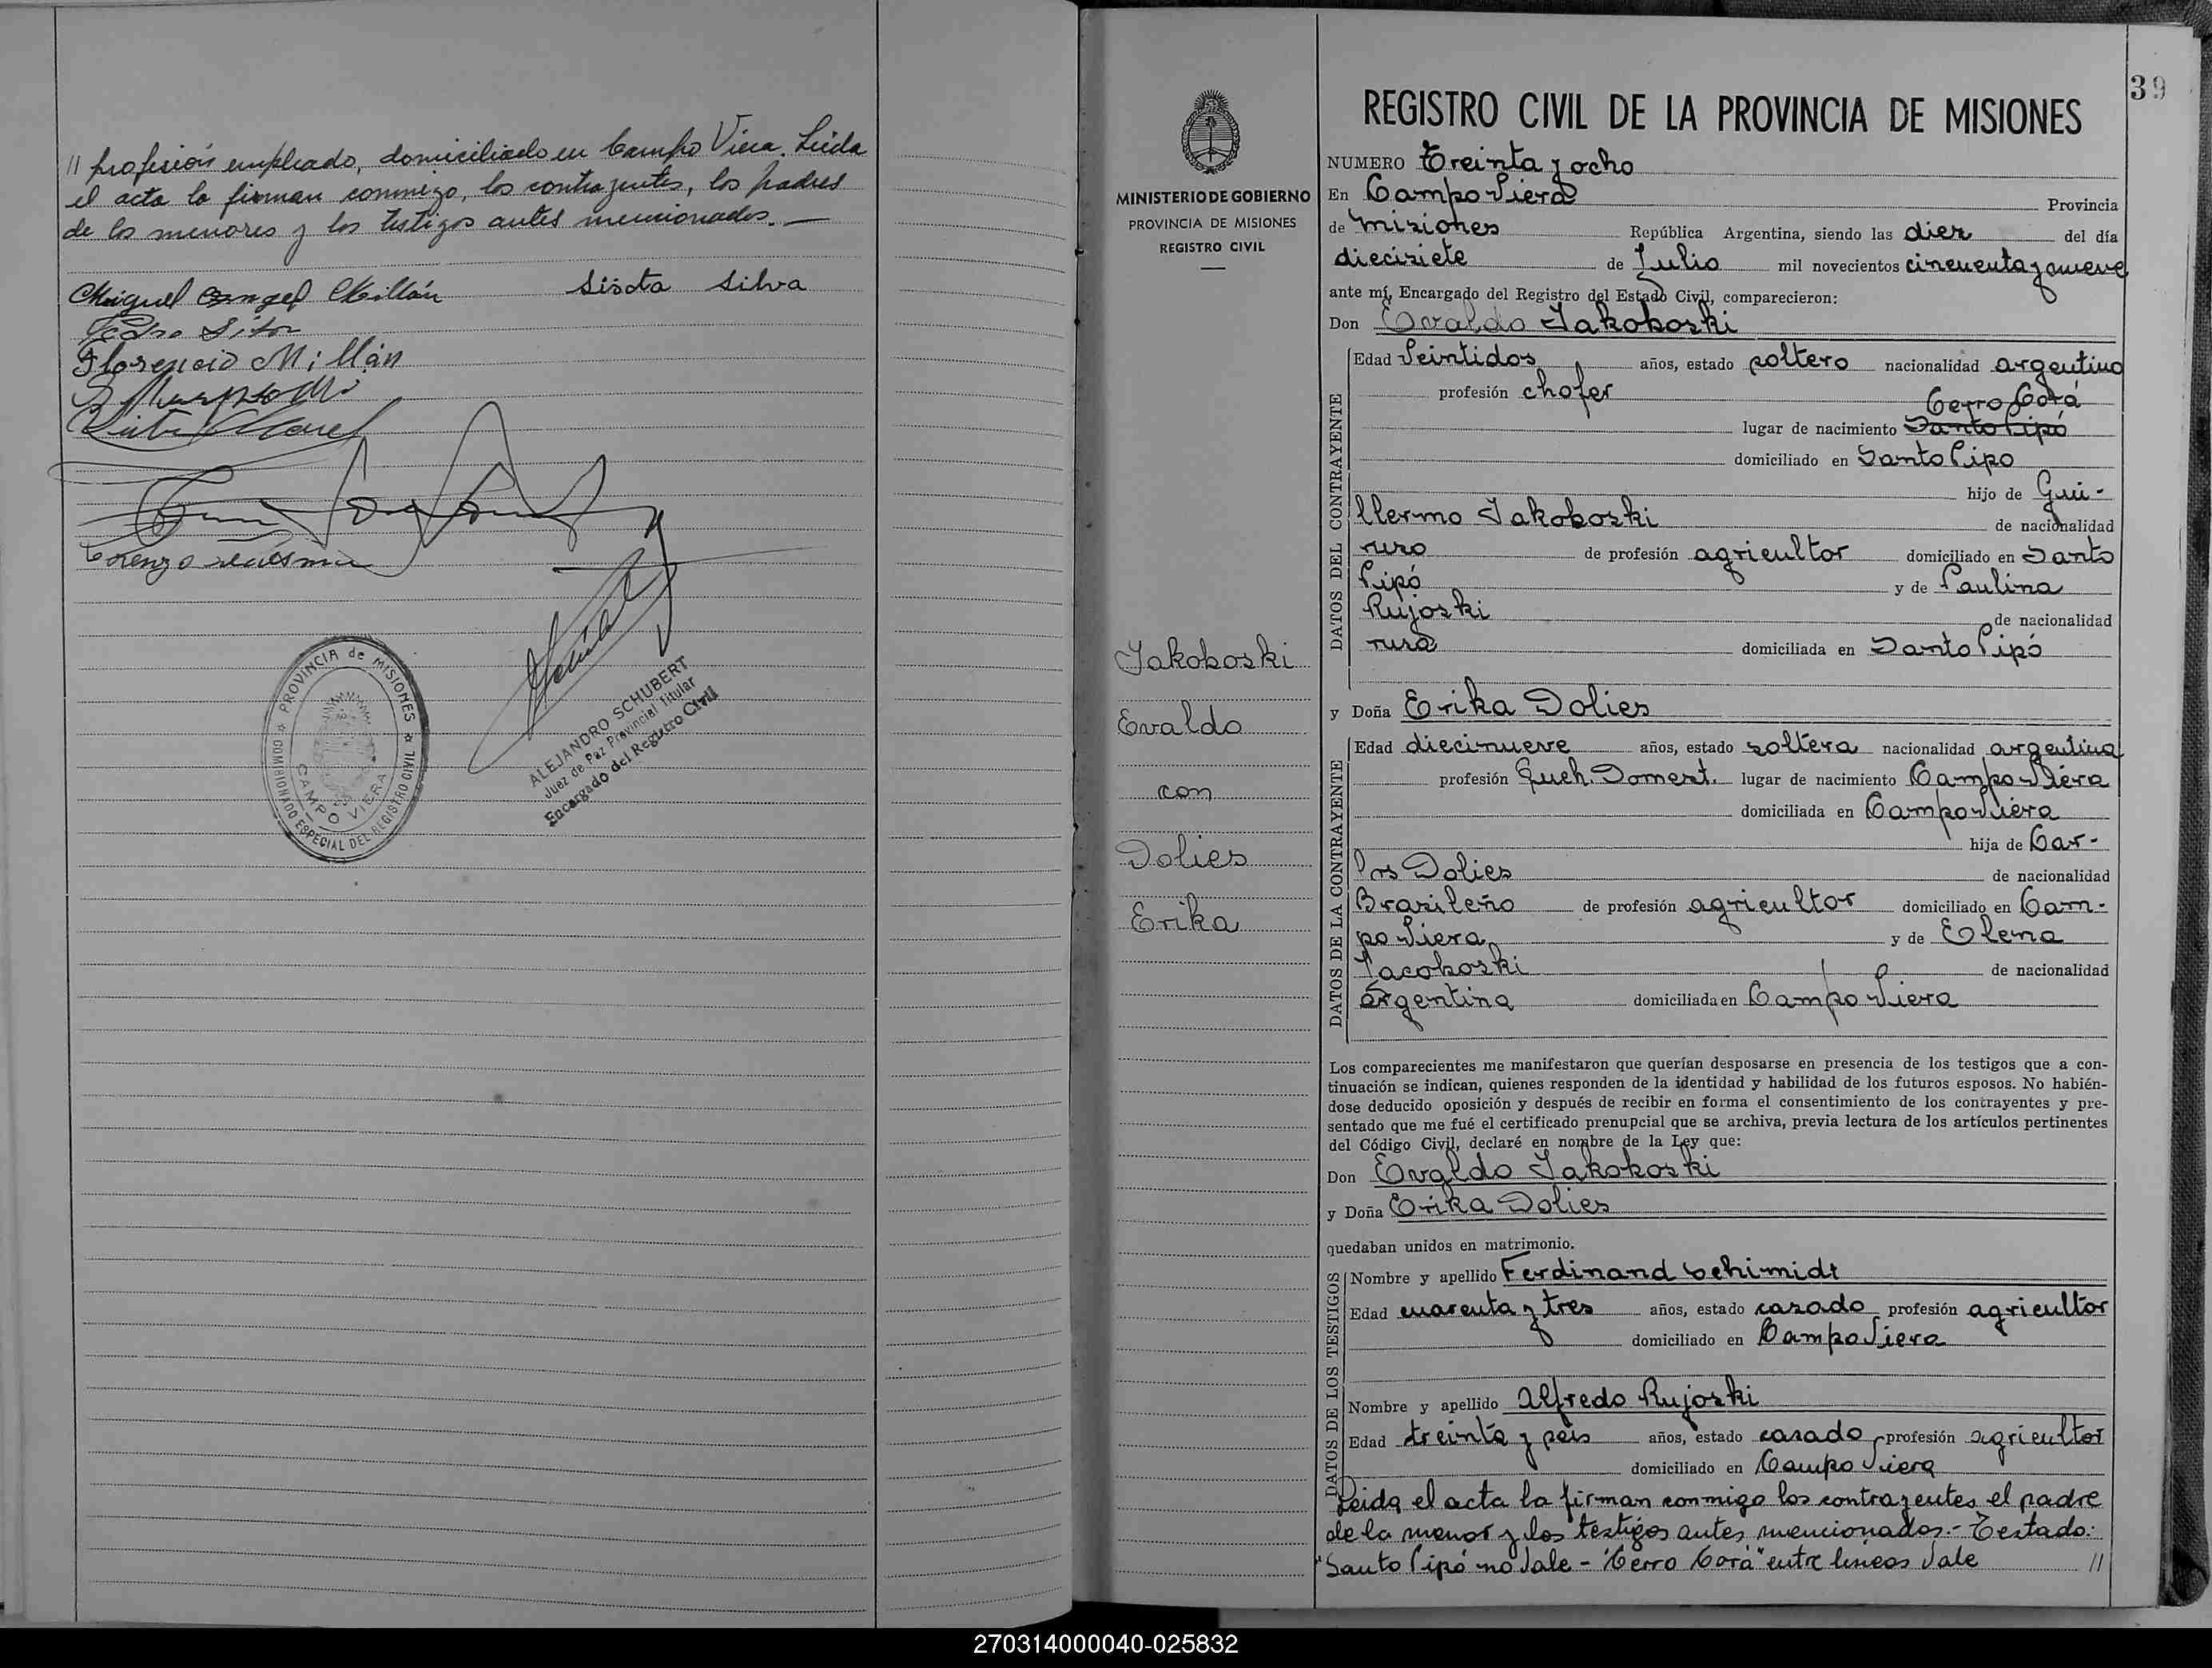 // profesión empleado, domiciliado en Campo Viera. Leída
el acta la firman conmigo, los contrayentes, los padres
de los menores y los testigos antes mencionados.—
Miguel Angel Millán Sixta Silva
Pedro
Florencio Millán
Lorenzo
PROVINCIA de MISIONES
COMISIONADO ESPECIAL DEL REGISTRO CIVIL
CAMPO VIERA
ALEJANDRO SCHUBERT
Juez de Paz Provincial Titular
Encargado del Registro Civil
39
MINISTERIO DE GOBIERNO
PROVINCIA DE MISIONES
REGISTRO CIVIL
Jakoboski
Evaldo
con
Dolies
Erika
REGISTRO CIVIL DE LA PROVINCIA DE MISIONES
NUMERO Treinta y ocho
En Campo Viera Provincia
de Misiones República Argentina, siendo las diez del día
diecisiete de Julio mil novecientos cincuenta y nueve
ante mí, Encargado del Registro del Estado Civil, comparecieron:
Don Evaldo Jakoboski
DATOS DEL CONTRAYENTE
Edad Veintidos años, estado soltero nacionalidad argentino
profesión chofer Cerro Corá
lugar de nacimiento Santo Pipó
domiciliado en Santo Pipo
hijo de Gui-
llermo Jakoboski de nacionalidad
ruso de profesión agricultor domiciliado en Santo
Pipó y de Paulina
Rujoski de nacionalidad
rusa domiciliada en Santo Pipó
y Doña Erika Dolies
DATOS DE LA CONTRAYENTE
Edad diecinueve años, estado soltera nacionalidad argentina
profesión Queh. Domest. lugar de nacimiento Campo Viera
domiciliada en Campo Viera
hija de Car-
los Dolies de nacionalidad
Brasileño de profesión agricultor domiciliado en Cam-
po Viera y de Elena
Jacoboski de nacionalidad
argentina domiciliada en Campo Viera
Los comparecientes me manifestaron que querían desposarse en presencia de los testigos que a con-
tinuación se indican, quienes responden de la identidad y habilidad de los futuros esposos. No habién-
dose deducido oposición y después de recibir en forma el consentimiento de los contrayentes y pre-
sentado que me fué el certificado prenupcial que se archiva, previa lectura de los artículos pertinentes
del Código Civil, declaré en nombre de la Ley que:
Don Evaldo Jakoboski
y Doña Erika Dolies
quedaban unidos en matrimonio.
DATOS DE LOS TESTIGOS
Nombre y apellido Ferdinand Schimidt
Edad cuarenta y tres años, estado casado profesión agricultor
domiciliado en Campo Viera
Nombre y apellido Alfredo Rujoski
Edad treinta y seis años, estado casado profesión agricultor
domiciliado en Campo Viera
Leida el acta la firman conmigo los contrayentes el padre
de la menor y los testigos antes mencionados.- Testado:
"Santo Pipó no vale - "Cerro Corá" entre lineas vale //
270314000040-025832